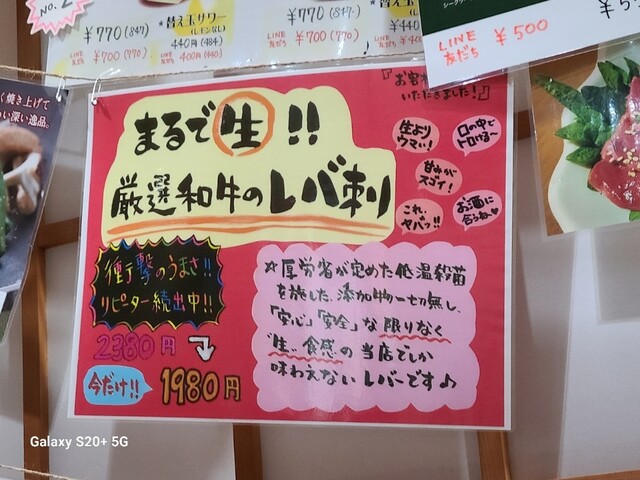 No.2
¥770(847)
LINE友だち ¥700(770)
*替え玉サワー
(レモンなし)
440円(484)
LINE友だち 400円(440)
¥770(847)
LINE友だち ¥700(770)
LINE友だち ¥500
く焼き上げて
い深い逸品。
『お客
いただきました!』
まるで生!!
厳選和牛のレバ刺り
生より
ウマい!
口の中で
トロける〜
甘みが
スゴイ!
これ、
ヤバッ!!
お酒に
合うね♥
衝撃のうまさ!!
リピーター続出中!!
2380円
今だけ!! 1980円
☆厚労省が定めた低温殺菌
を施した、添加物一切無し、
「安心」「安全」な限りなく
"生、食感の当店でしか
味わえないレバーです♪
Galaxy S20+ 5G